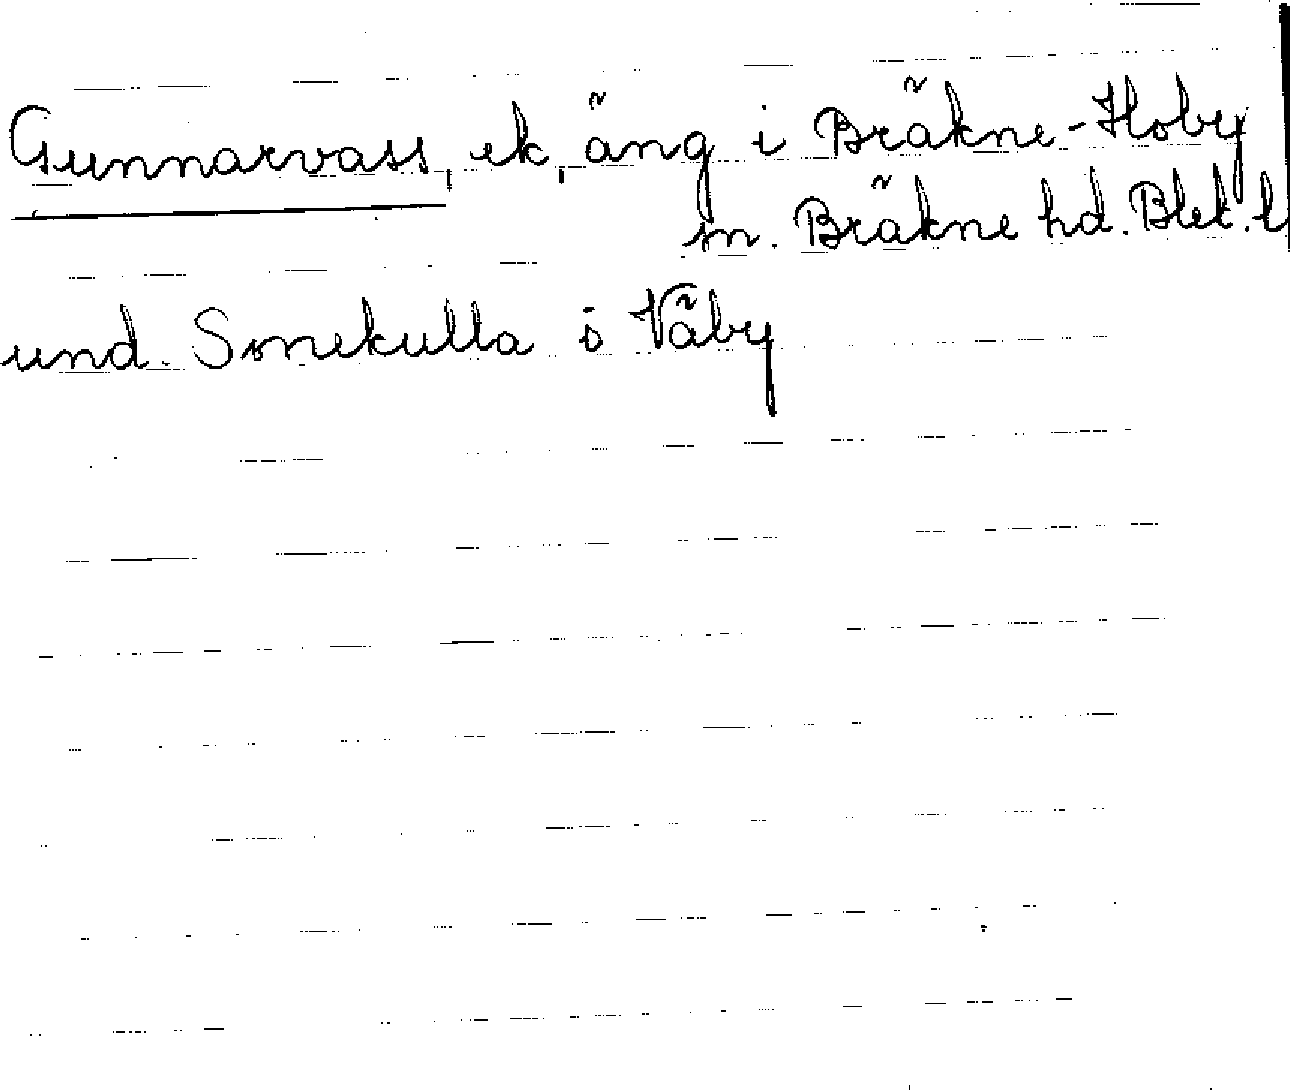 Gunnarvass, ek, äng i Bräkne-Hoby
sn. Bräkne hd. Blek. l
und. Sonekulla i Väby